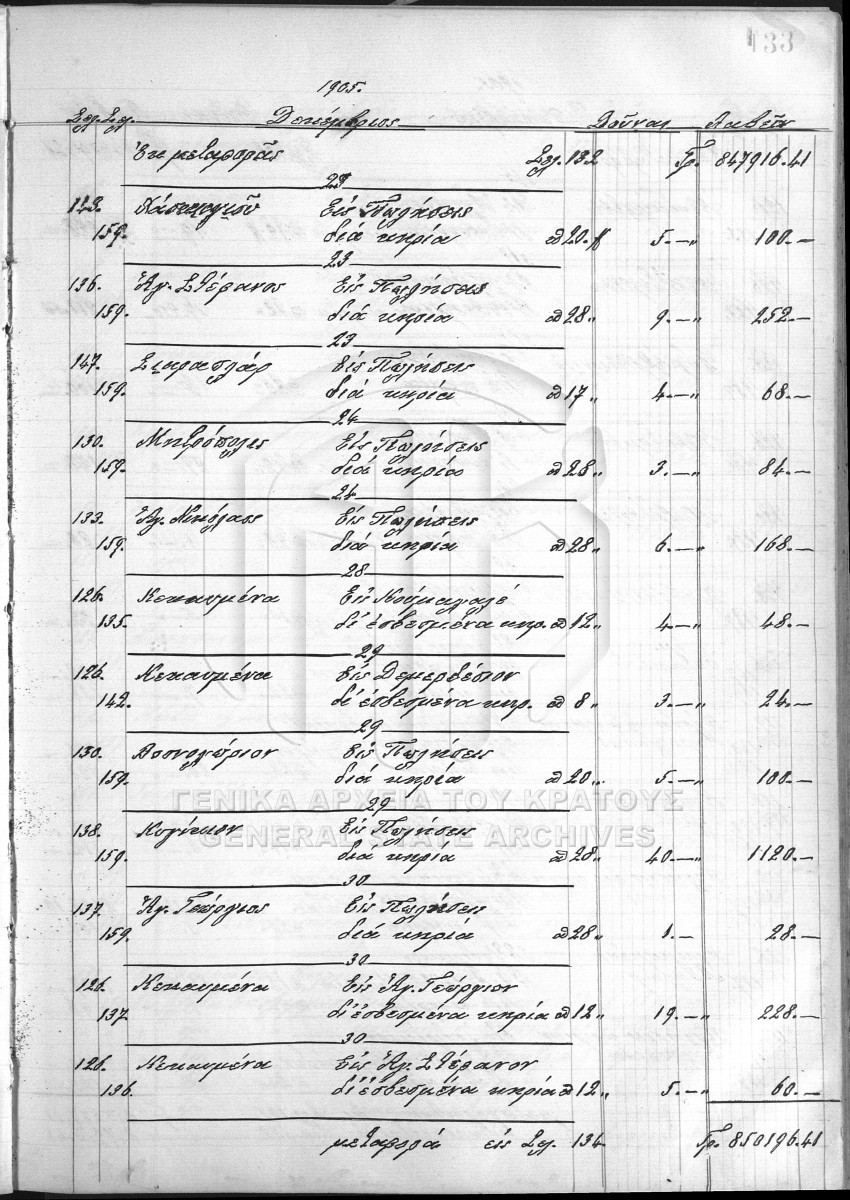 133
1905.
Σελ. Σελ. Δεκέμβριος Δοῦναι Λαβεῖν
Ἐκ μεταφορᾶς Σελ. 132 Γρ. 847916.41
23
143. Εἰς Πωλήσεις
159. διά κηρία α 20. 5.— 100.—
23
136. Ἁγ. Στέφανος Εἰς Πωλήσεις
159. διά κηρία α 28 " 9.— " 252.—
23
147. Εἰς Πωλήσεις
159. διά κηρία α 17 " 4.— " 68.—
24
130. Μητρόπολις Εἰς Πωλήσεις
159. διά κηρία α 28 " 3.— " 84.—
24
133. Ἁγ. Νικόλαος Εἰς Πωλήσεις
159. διά κηρία α 28 " 6.— " 168.—
28
126. Κεκαυμένα Εἰς
135. δι' ἐσβεσμένα κηρ. α 12 " 4.— " 48.—
29
126. Κεκαυμένα Εἰς Δεμερδέσιον
142. δι' ἐσβεσμένα κηρ. α 8 " 3.— " 24.—
29
130. Εἰς Πωλήσεις
159. διά κηρία α 20 " 5.— " 100.—
29
ΓΕΝΙΚΑ ΑΡΧΕΙΑ ΤΟΥ ΚΡΑΤΟΥΣ
GENERAL STATE ARCHIVES
138. Εἰς Πωλήσεις
159. διά κηρία α 28 " 40.— " 1120.—
30
137. Ἁγ. Γεώργιος Εἰς Πωλήσεις
159. διά κηρία α 28 " 1.— 28.—
30
126. Κεκαυμένα Εἰς Ἁγ. Γεώργιον
137. δι' ἐσβεσμένα κηρία α 12 " 19.— " 228.—
30
126. Κεκαυμένα Εἰς Ἁγ. Στέφανον
136. δι' ἐσβεσμένα κηρία α 12 " 5.— " 60.—
μεταφορά εἰς Σελ. 134 Γρ. 850196.41